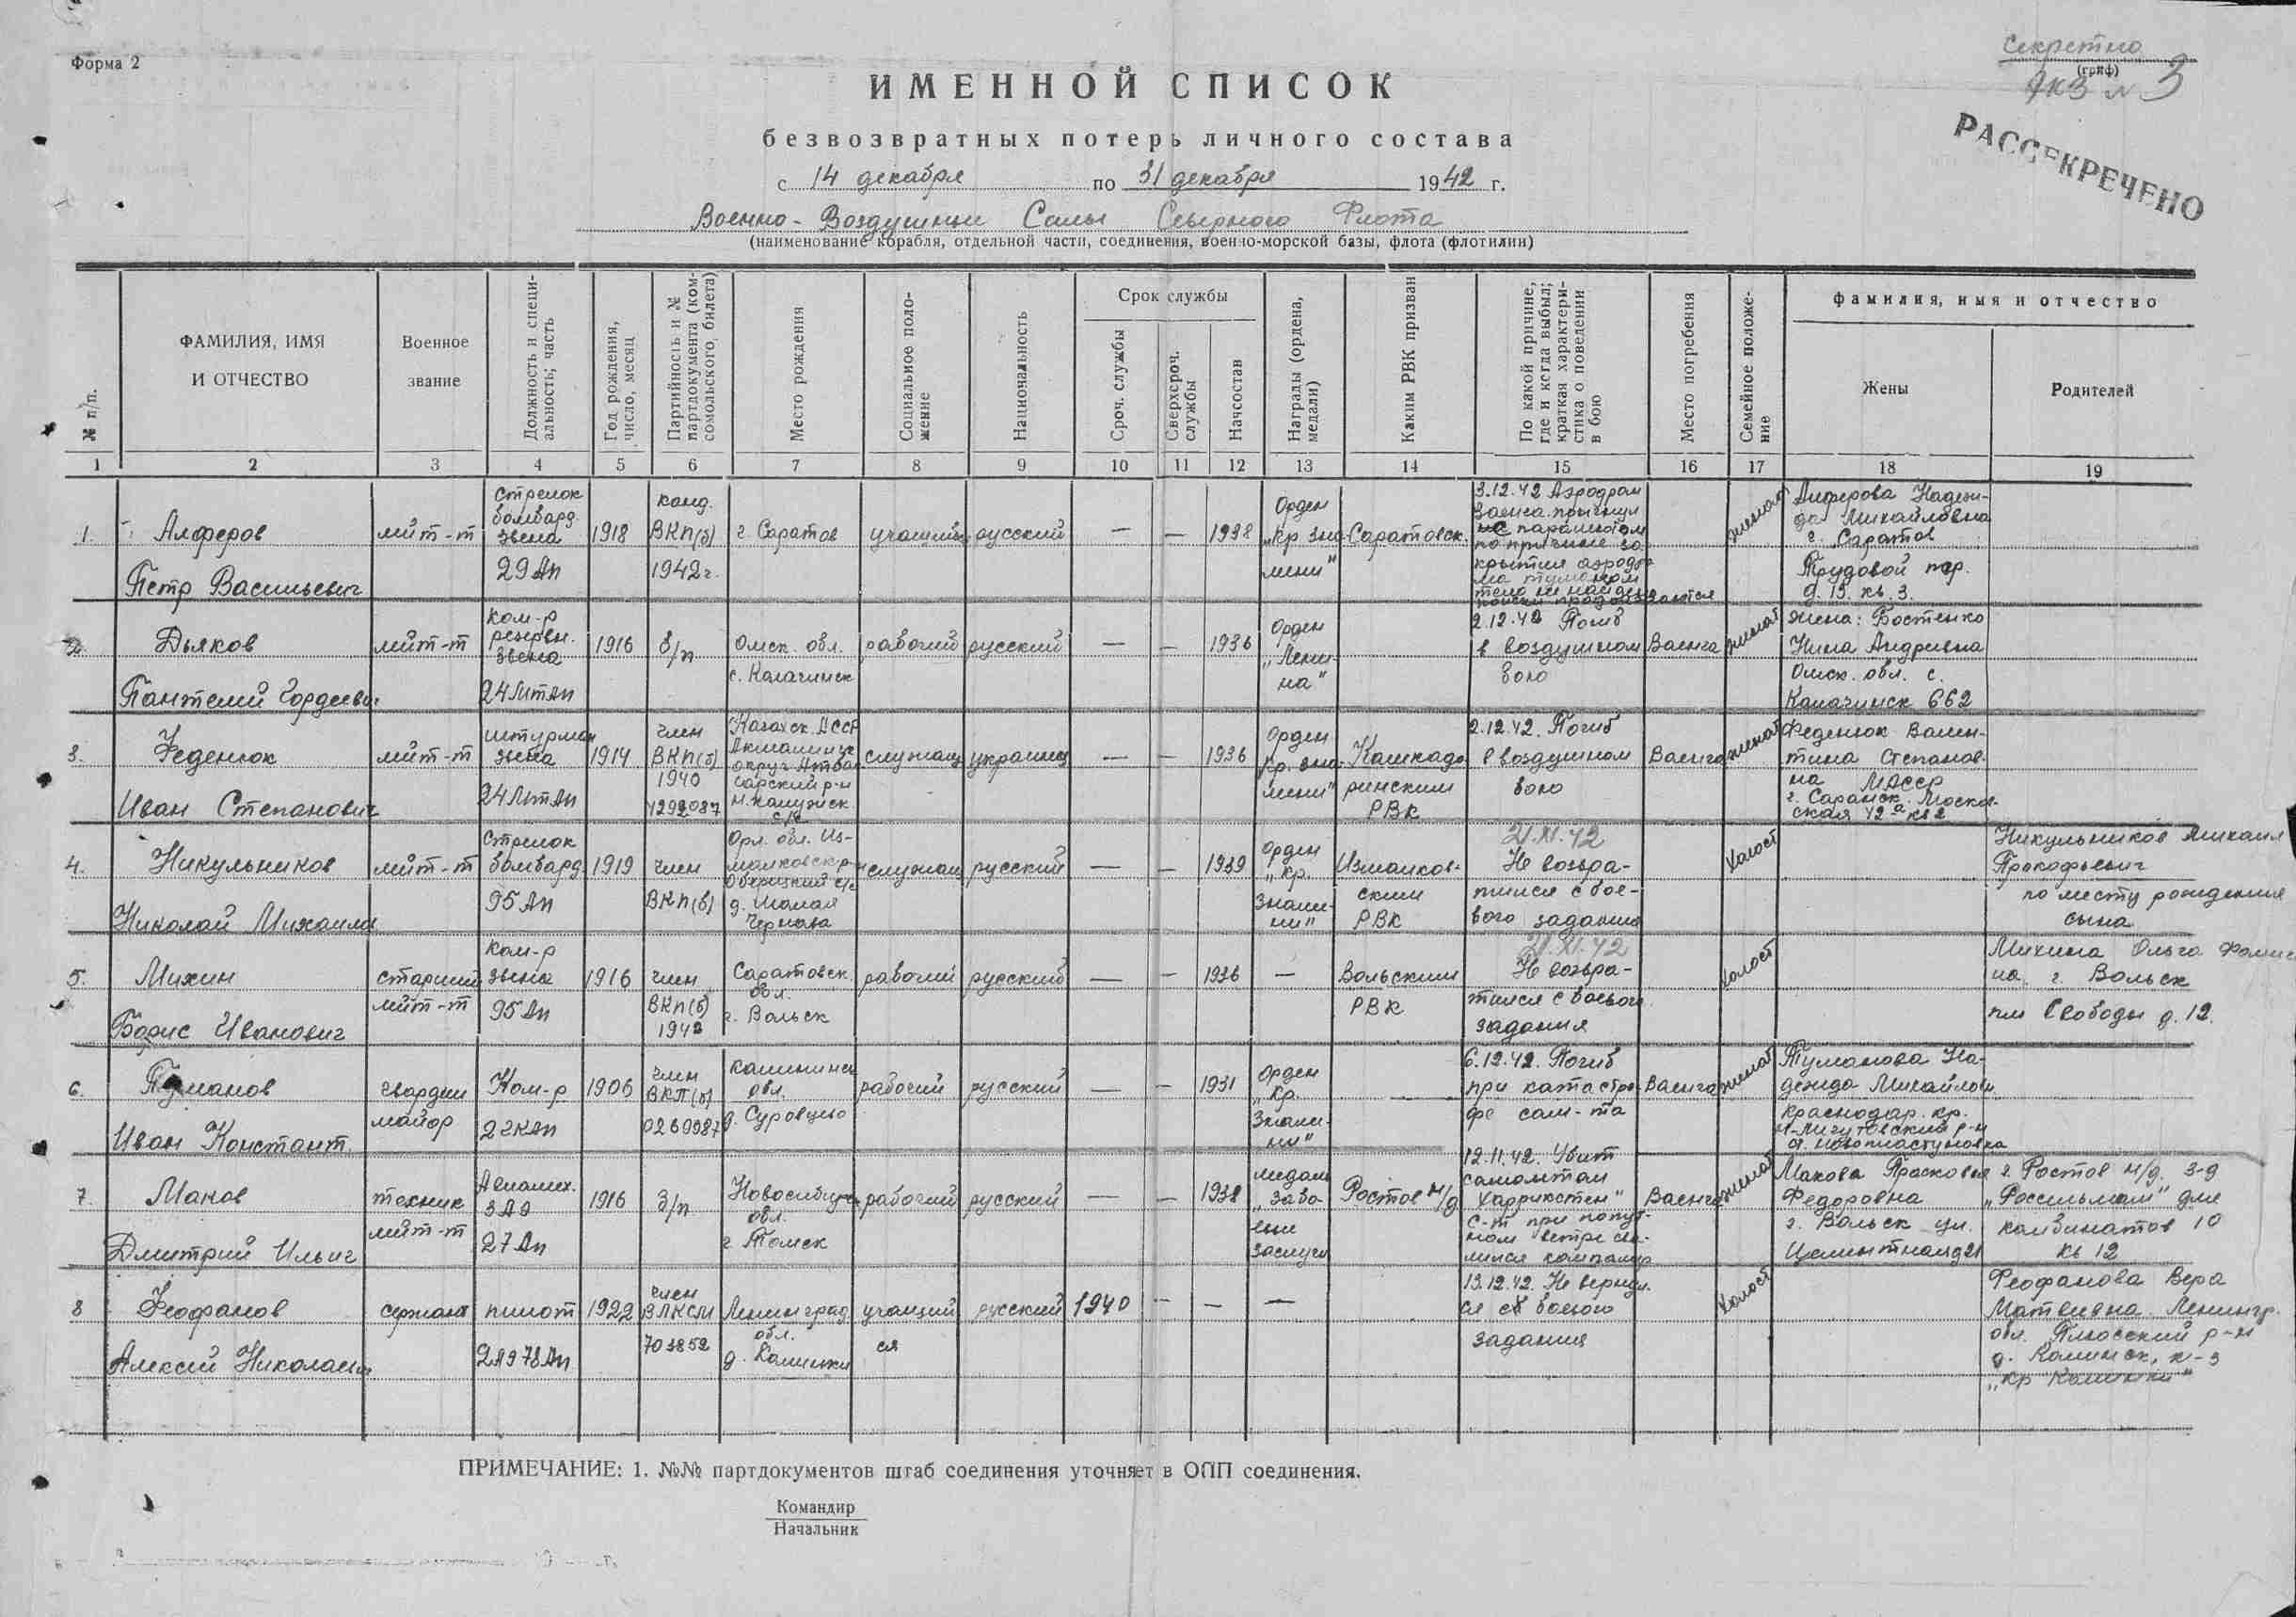 Форма 2
Секретно
(гриф)
Экз № 3
РАССЕКРЕЧЕНО
ИМЕННОЙ СПИСОК
безвозвратных потерь личного состава
с 14 декабря по 31 декабря 1942 г.
Военно-Воздушные Силы Северного Флота
(наименование корабля, отдельной части, соединения, военно-морской базы, флота (флотилии)
№ п/п.
ФАМИЛИЯ, ИМЯ
И ОТЧЕСТВО
Военное
звание
Должность и специ-
альность; часть
Год рождения,
число, месяц
Партийность и №
партдокумента (ком-
сомольского, билета)
Место рождения
Социальное поло-
жение
Национальность
Срок службы
Сроч. службы
Сверхсроч.
службы
Начсостав
Награды (ордена,
медали)
Каким РВК призван
По какой причине,
где и когда выбыл;
краткая характери-
стика о поведении
в бою
Место погребения
Семейное положе-
ние
фамилия, имя и отчество
Жены
Родителей
1 2 3 4 5 6 7 8 9 10 11 12 13 14 15 16 17 18 19
1.
Алферов
Петр Васильевич
лейт-т
Стрелок
бомбард.
звена
29 Ап
1918
канд.
ВКП(б)
1942 г.
г. Саратов
учащийс
русский
—
—
1938
Орден
„Кр зна-
мени"
Саратовск.
3.12.42 Аэродром
Ваенга прыгнул
с парашютом
по причине за
крытия аэродро
ма туманом
тело не найдено
поиски продолжаются
женат
Алферова Надеж-
да Михайловна
г. Саратов
Трудовой пер.
д. 13. кв. 3.
2.
Дьяков
Пантелей Гордеевич
лейт-т
Ком-р
резервн.
звена
24 МТАп
1916
б/п
Омск. обл.
с. Калачинск
рабочий
русский
—
—
1936
Орден
„Лени-
на"
2.12.42 Погиб
в воздушном
бою
Ваенга
женат
жена: Костенко
Нина Андреевна
Омск. обл. с.
Калачинск 662
3.
Феденюк
Иван Степанович
лейт-т
штурман
звена
24 МТАп
1914
член
ВКП(б)
1940
4292087
Казахск. АССР
Акмолинск
округ Атба
сарский р-н
н. Калужск.
с/с
служащ
украинец
—
—
1936
Орден
Кр. зна-
мени"
Кашкада
ринским
РВК
2.12.42. Погиб
в воздушном
бою
Ваенга
женат
Феденюк Вален-
тина Степанов-
на МАССР
г. Саранск. Москов-
ская 42а кв 2
4.
Никульников
Николай Михайлов
лейт-т
Стрелок
бомбард
95 Ап
1919
член
ВКП(б)
Орл. обл. Из-
малковск р-
д. Малая
Чернава
служащ
русский
—
—
1939
Орден
„Кр.
Знаме-
ни"
Измалков-
ским
РВК
21.XI.42
Не возвра-
тился с бое-
вого задания
холост
Никульников Михаил
Прокофьевич
по месту рождения
сына
5.
Михин
Борис Иванович
старший
лейт-т
Ком-р
звена
95 Ап
1916
член
ВКП(б)
1942
Саратовск.
обл.
г. Вольск
рабочий
русский
—
—
1936
—
Вольским
РВК
21.XI.42
Не возвра-
тился с боевого
задания
холост
Михина Ольга Фоми
на. г. Вольск
пл Свободы д. 12.
6.
Туманов
Иван Констант.
гвардии
майор
Ком-р
2 гкАп
1906
член
ВКП(б)
0269987
Калининск
обл.
д. Суровцево
рабочий
русский
—
—
1931
Орден
„Кр.
Знаме-
ни"
6.12.42. Погиб
при катастро-
фе сам-та
Ваенга
женат
Туманова На-
дежда Михайловн.
Краснодар. кр.
7.
Маков
Дмитрий Ильич
техник
лейт-т
Авиамех.
3 АЭ
27 Ап
1916
б/п
Новосибирск
обл.
г Томск
рабочий
русский
—
—
1938
медаль
„За бо
евые
заслуги
Ростов н/Д
12.11.42. Убит
самолетом
„Харрикейн"
с-т при попут-
ном ветре
Ваенга
женат
Макова Прасковья
Федоровна
г. Вольск ул.
Цементная д 21
г. Ростов н/Д. З-д
„Россельмаш" дом
комбинатов 10
кв 12
8
Феофанов
Алексей Николаевич
сержант
пилот
2АЭ 78 Ап
1922
член
ВЛКСМ
703852
Ленинград
обл.
д. Калинки
учащий
ся
русский
1940
—
—
—
13.12.42. Не вернул
ся с боевого
задания
холост
Феофанова Вера
Матвеевна Ленингр.
обл. Плюсский р-н
д. Калинск, к-з
„Кр Калинки"
ПРИМЕЧАНИЕ: 1. №№ партдокументов штаб соединения уточняет в ОПП соединения.
Командир
Начальник